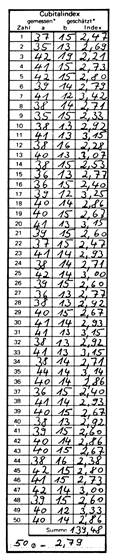 Cubitalindex
gemessen* geschätzt*
a b Index
1 37 15 2,47
2 35 13 2,69
3 42 19 2,21
4 41 15 2,73
5 42 15 2,80
6 39 14 2,79
7 41 12 3,42
8 38 14 2,71
9 35 15 2,33
10 38 13 2,92
11 41 13 3,15
12 38 16 2,28
13 40 13 3,07
14 38 15 2,53
15 36 13 2,77
16 36 15 2,40
17 39 12 3,25
18 40 14 2,86
19 40 15 2,67
20 41 13 3,15
21 39 15 2,60
22 37 15 2,47
23 41 14 2,93
24 38 14 2,71
25 42 14 3,00
26 39 15 2,60
27 36 13 2,77
28 38 13 2,92
29 40 15 2,67
30 41 14 2,93
31 41 13 3,15
32 38 13 2,92
33 41 13 3,15
34 38 14 2,71
35 44 14 3,14
36 40 14 2,86
37 36 15 2,40
38 41 14 2,93
39 40 15 2,67
40 38 13 2,92
41 39 15 2,60
42 40 14 2,86
43 40 15 2,67
44 38 16 2,38
45 42 15 2,80
46 41 15 2,73
47 42 14 3,00
48 39 15 2,60
49 40 12 3,33
50 40 14 2,86
Summe: 139,48
50 ⌀ = 2,79